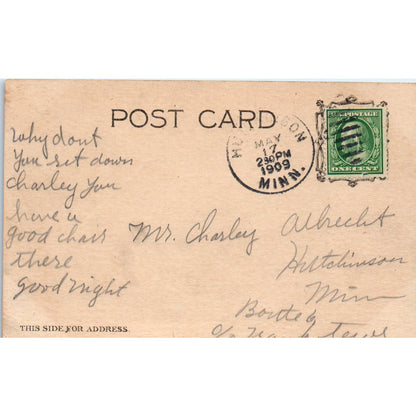 POST CARD
MAY
17
2 30 PM
1909
MINN.
U.S. POSTAGE
ONE CENT
Why dont
You set down
Charley You
have a
good chair
there
good night
Mr. Charley Albrecht
Hutchinson
Minn
THIS SIDE FOR ADDRESS.